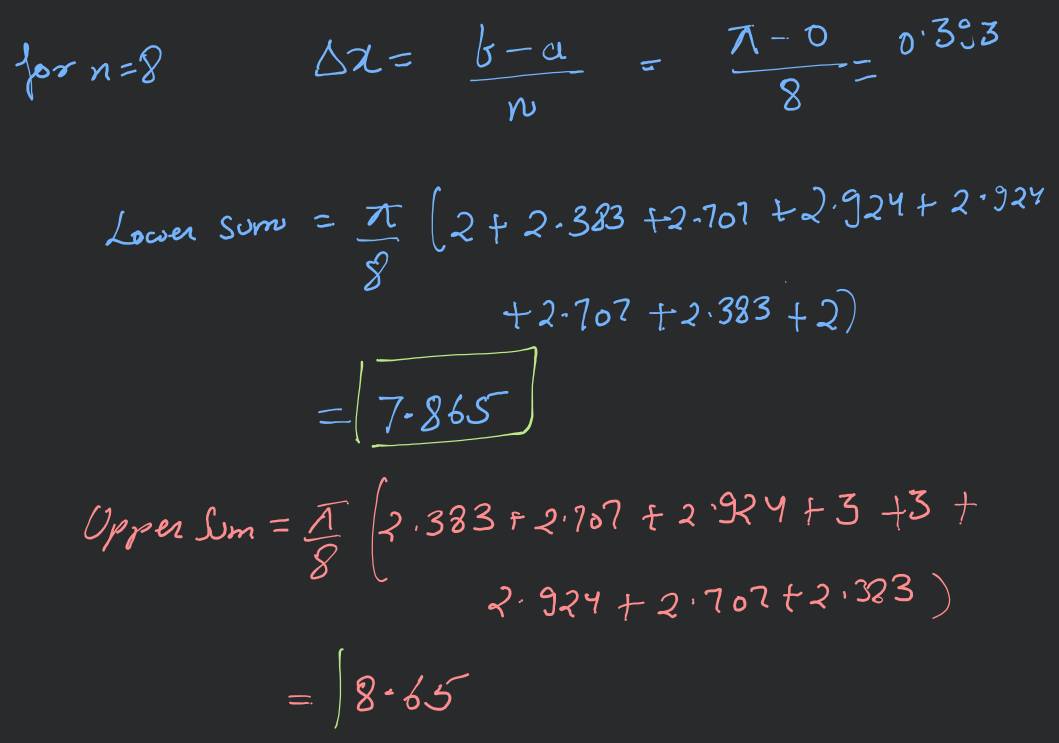 for n=8 Δx = b-a/n = π-0/8 = 0.393
Lower sum = π/8 (2 + 2.383 + 2.707 + 2.924 + 2.924
+ 2.707 + 2.383 + 2)
= 7.865
Upper Sum = π/8 (2.383 + 2.707 + 2.924 + 3 + 3 +
2.924 + 2.707 + 2.383)
= 8.65